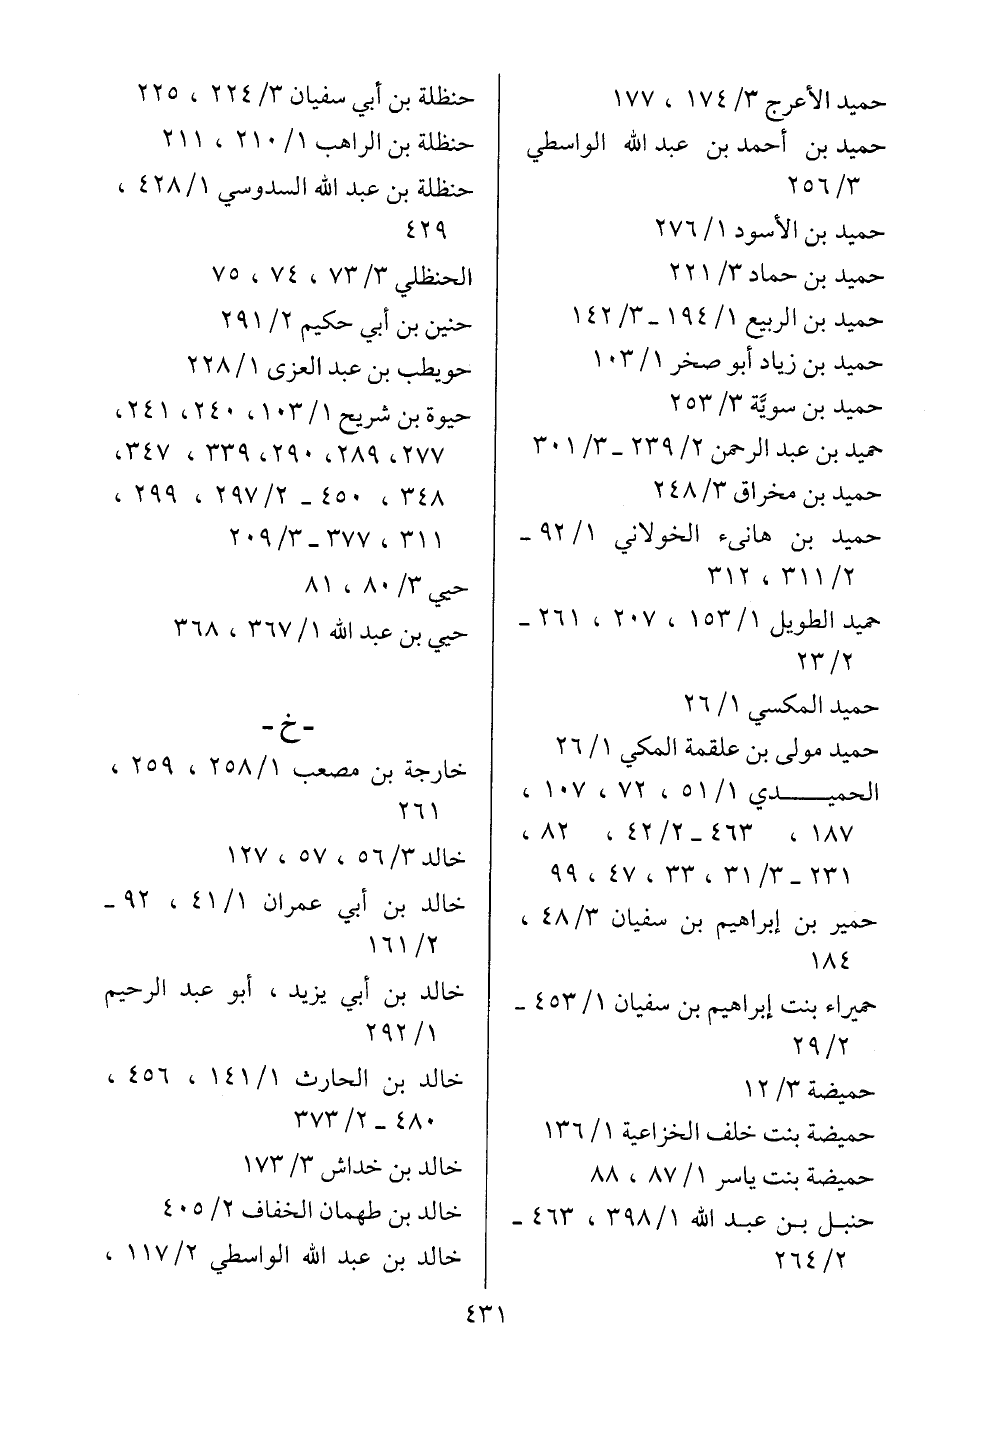 حميد الأعرج ٣/ ١٧٤ ، ١٧٧
حميد بن أحمد بن عبد الله الواسطي
٣/ ٢٥٦
حميد بن الأسود ١/ ٢٧٦
حميد بن حماد ٣/ ٢٢١
حميد بن الربيع ١/ ١٩٤ ـ ٣/ ١٤٢
حميد بن زياد أبو صخر ١/ ١٠٣
حميد بن سويَّة ٣/ ٢٥٣
حميد بن عبد الرحمن ٢/ ٢٣٩ ـ ٣/ ٣٠١
حميد بن مخراق ٣/ ٢٤٨
حميد بن هانىء الخولاني ١/ ٩٢ ـ
٢/ ٣١١ ، ٣١٢
حميد الطويل ١/ ١٥٣ ، ٢٠٧ ، ٢٦١ ـ
٢/ ٢٣
حميد المكسي ١/ ٢٦
حميد مولى بن علقمة المكي ١/ ٢٦
الحميـــــدي ١/ ٥١ ، ٧٢ ، ١٠٧ ،
١٨٧ ، ٤٦٣ ـ ٢/ ٤٢ ، ٨٢ ،
٢٣١ ـ ٣/ ٣١ ، ٣٣ ، ٤٧ ، ٩٩
حمير بن إبراهيم بن سفيان ٣/ ٤٨ ،
١٨٤
حميراء بنت إبراهيم بن سفيان ١/ ٤٥٣ ـ
٢/ ٢٩
حميضة ٣/ ١٢
حميضة بنت خلف الخزاعية ١/ ١٣٦
حميضة بنت ياسر ١/ ٨٧ ، ٨٨
حنبـل بـن عبـد الله ١/ ٣٩٨ ، ٤٦٣ ـ
٢/ ٢٦٤
حنظلة بن أبي سفيان ٣/ ٢٢٤ ، ٢٢٥
حنظلة بن الراهب ١/ ٢١٠ ، ٢١١
حنظلة بن عبد الله السدوسي ١/ ٤٢٨ ،
٤٢٩
الحنظلي ٣/ ٧٣ ، ٧٤ ، ٧٥
حنين بن أبي حكيم ٢/ ٢٩١
حويطب بن عبد العزى ١/ ٢٢٨
حيوة بن شريح ١/ ١٠٣، ٢٤٠، ٢٤١،
٢٧٧، ٢٨٩، ٢٩٠، ٣٣٩ ، ٣٤٧،
٣٤٨ ، ٤٥٠ ـ ٢/ ٢٩٧ ، ٢٩٩ ،
٣١١ ، ٣٧٧ ـ ٣/ ٢٠٩
حيي ٣/ ٨٠ ، ٨١
حيي بن عبد الله ١/ ٣٦٧ ، ٣٦٨
- خ -
خارجة بن مصعب ١/ ٢٥٨ ، ٢٥٩ ،
٢٦١
خالد ٣/ ٥٦ ، ٥٧ ، ١٢٧
خالد بن أبي عمران ١/ ٤١ ، ٩٢ ـ
٢/ ١٦١
خالد بن أبي يزيد ، أبو عبد الرحيم
١/ ٢٩٢
خالد بن الحارث ١/ ١٤١ ، ٤٥٦ ،
٤٨٠ ـ ٢/ ٣٧٣
خالد بن خداش ٣/ ١٧٣
خالد بن طهمان الخفاف ٢/ ٤٠٥
خالد بن عبد الله الواسطي ٢/ ١١٧ ،
٤٣١